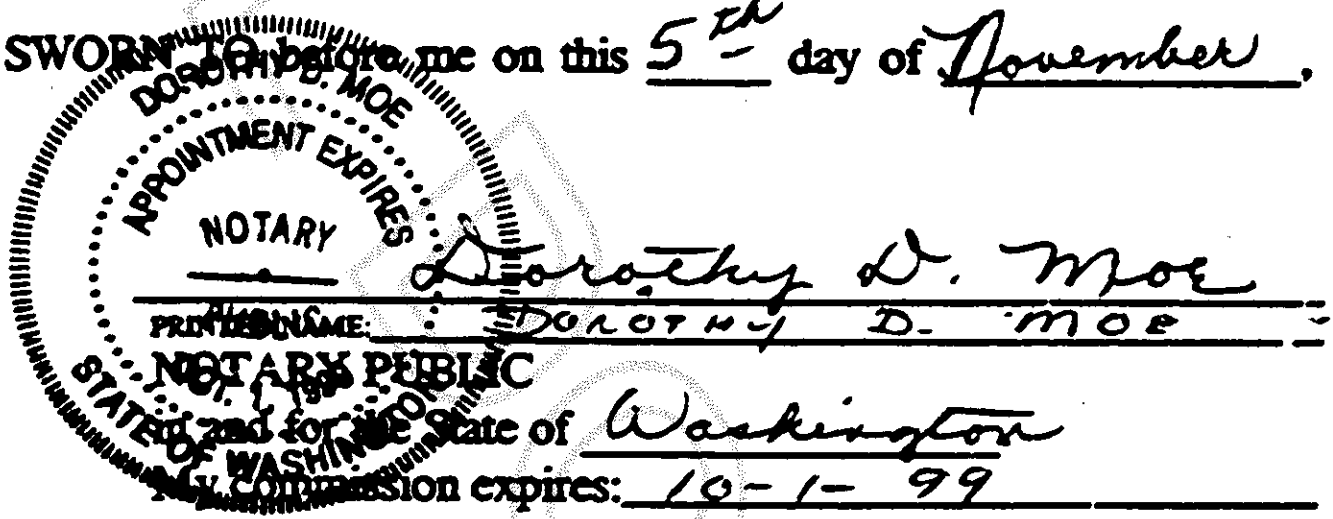 SWORN TO before me on this 5th day of November,
DOROTHY D. MOE
APPOINTMENT EXPIRES
NOTARY
PUBLIC
OCT. 1
STATE OF WASHINGTON
Dorothy D. Moe
PRINTED NAME: DOROTHY D. MOE
NOTARY PUBLIC
in and for the State of Washington
My commission expires: 10-1-99